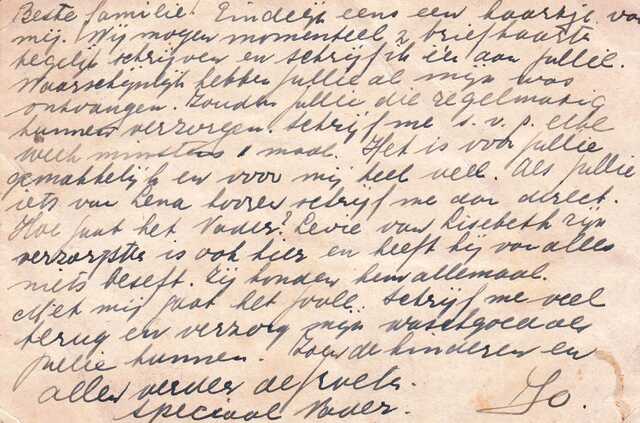 Beste familie! Eindelijk eens een kaartje van
mij. Wij mogen momenteel 2 briefkaarten
tegelijk schrijven en schrijf ik één aan jullie.
Waarschijnlijk hebben jullie al mijn was
ontvangen. Zouden jullie die regelmatig
kunnen verzorgen. Schrijf me s.v.p. elke
week minstens 1 maal. Het is voor jullie
gemakkelijk en voor mij heel veel. Als jullie
iets van Lena hooren schrijf me dan direct.
Hoe gaat het Vader? Levie van Lisebeth zijn
verzorgster is ook hier en heeft hij van alles
niets beseft. Zij houden hem allemaal.
Met mij gaat het goed. Schrijf me veel
terug en verzorg mijn waschgoed als
jullie kunnen. Zoen de kinderen en
allen verder de groeten.
Speciaal Vader. Jo.